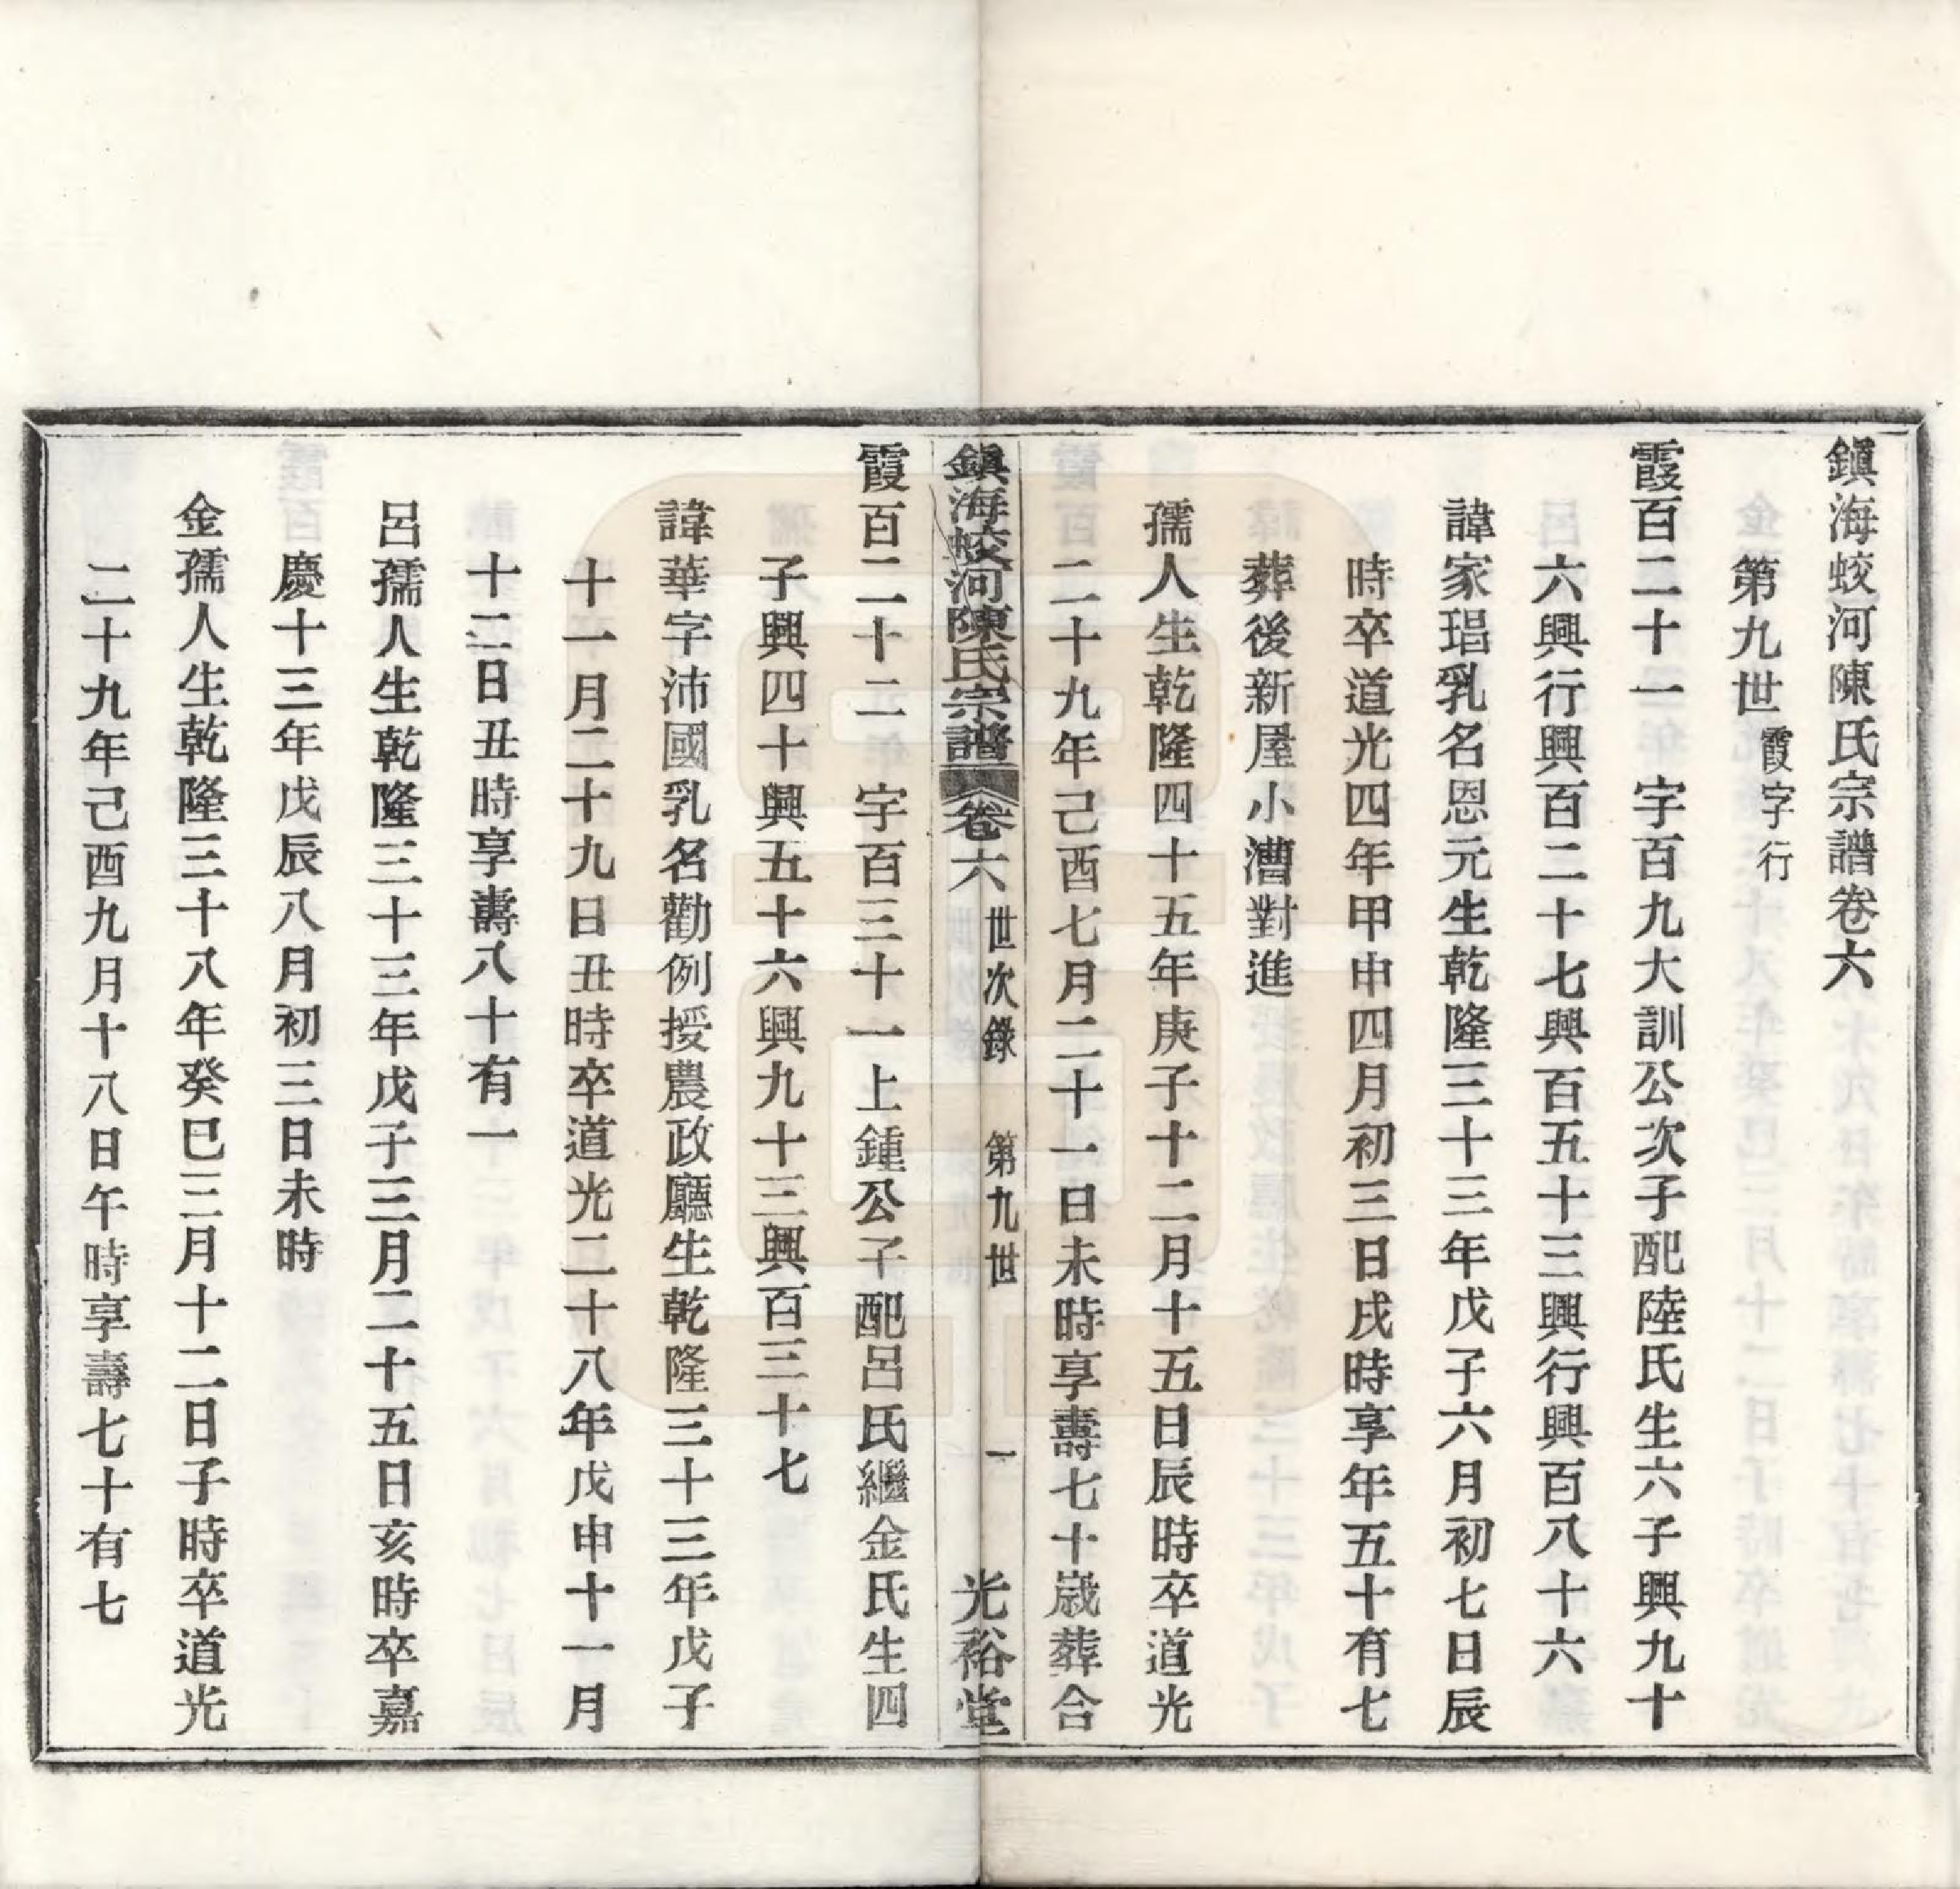 鎮海蛟河陳氏宗譜卷六
第九世 霞字行
霞百二十一 字百九大訓公次子配陸氏生六子興九十
六興行興百二十七興百五十三興行興百八十六
諱家琩乳名恩元生乾隆三十三年戊子六月初七日辰
時卒道光四年甲申四月初三日戌時享年五十有七
葬後新屋小漕對進
孺人生乾隆四十五年庚子十二月十五日辰時卒道光
二十九年己酉七月二十一日未時享壽七十歲葬合
鎮海蛟河陳氏宗譜 卷六 世次錄 第九世 一 光裕堂
霞百二十二 字百三十一上鍾公子配呂氏繼金氏生四
子興四十興五十六興九十三興百三十七
諱華字沛國乳名勸例授農政廳生乾隆三十三年戊子
十一月二十九日丑時卒道光二十八年戊申十一月
十二日丑時享壽八十有一
呂孺人生乾隆三十三年戊子三月二十五日亥時卒嘉
慶十三年戊辰八月初三日未時
金孺人生乾隆三十八年癸巳三月十二日子時卒道光
二十九年己酉九月十八日午時享壽七十有七